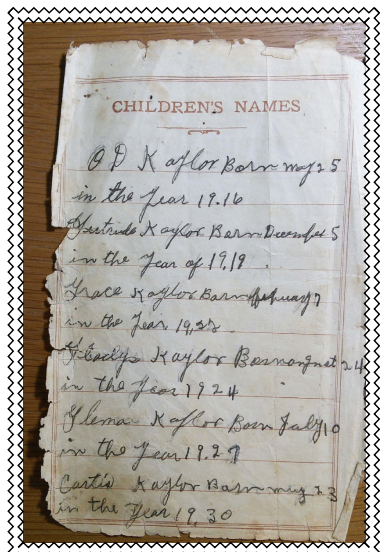 CHILDREN'S NAMES
O D Kaylor Born may 25
in the year 19.16
Gertrude Kaylor Born December 5
in the year of 19,19
Grace Kaylor Born february 7
in the year
Gladys Kaylor Born august 24
in the year 1924
Glema Kaylor Born July 10
in the year 1927
Curtis Kaylor Born may 23
in the year 19,30